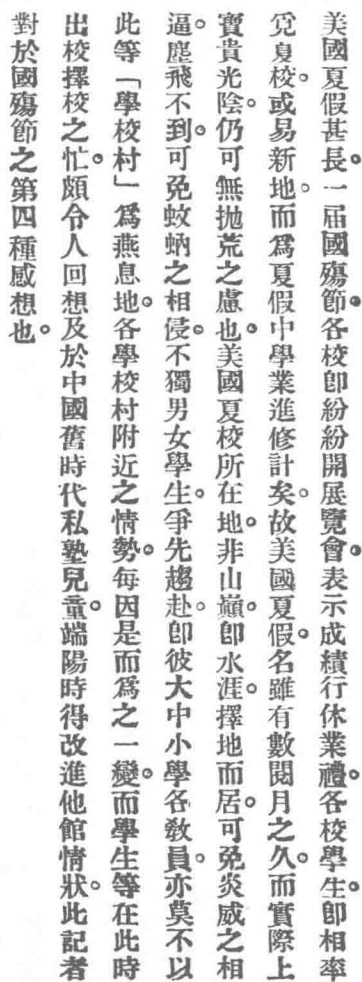 美國夏假甚長。一屆國殤節。各校卽紛紛開展覽會。表示成績行休業禮。各校學生。卽相率
覓夏校。或易新地。而爲夏假中學業進修計矣。故美國夏假。名雖有數閱月之久。而實際上
寶貴光陰。仍可無抛荒之慮也。美國夏校所在地。非山巔。卽水涯。擇地而居。可免炎威之相
逼。塵飛不到。可免蚊蚋之相侵。不獨男女學生。爭先趨赴。卽彼大中小學各敎員。亦莫不以
此等「學校村」爲燕息地。各學校村附近之情勢。每因是而爲之一變。而學生等在此時
出校擇校之忙。頗令人回想及於中國舊時代私塾兒童。端陽時得改進他館情狀。此記者
對於國殤節之第四種感想也。